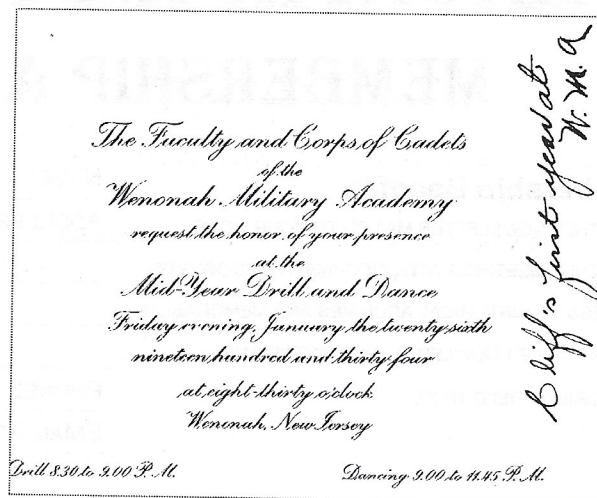 The Faculty and Corps of Cadets
of the
Wenonah Military Academy
request the honor of your presence
at the
Mid-Year Drill and Dance
Friday evening, January the twenty sixth
nineteen hundred and thirty four
at eight-thirty o'clock
Wenonah, New Jersey
Drill 8.30 to 9.00 P.M.
Dancing 9.00 to 11.45 P.M.
Cliff's first year at
W. M. A